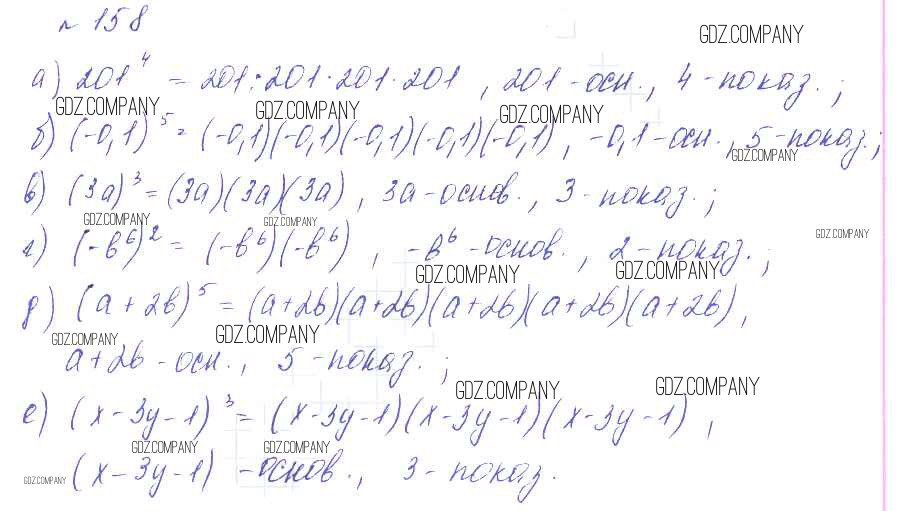 № 158
GDZ.COMPANY
а) 201⁴ = 201·201·201·201 , 201 - осн., 4 - показ. ;
GDZ.COMPANY GDZ.COMPANY GDZ.COMPANY
б) (-0,1)⁵ = (-0,1)(-0,1)(-0,1)(-0,1)(-0,1) , -0,1 - осн., 5 - показ. ;
GDZ.COMPANY
в) (3a)³ = (3a)(3a)(3a) , 3a - основ., 3 - показ. ;
GDZ.COMPANY GDZ.COMPANY GDZ.COMPANY
г) (-в⁶)² = (-в⁶)(-в⁶) , -в⁶ - основ., 2 - показ. ;
GDZ.COMPANY GDZ.COMPANY
д) (a + 2b)⁵ = (a+2b)(a+2b)(a+2b)(a+2b)(a+2b) ,
GDZ.COMPANY GDZ.COMPANY
a+2b - осн., 5 - показ. ;
GDZ.COMPANY GDZ.COMPANY
е) (x - 3y - 1)³ = (x - 3y - 1)(x - 3y - 1)(x - 3y - 1) ,
GDZ.COMPANY GDZ.COMPANY
(x - 3y - 1) - основ., 3 - показ.
GDZ.COMPANY